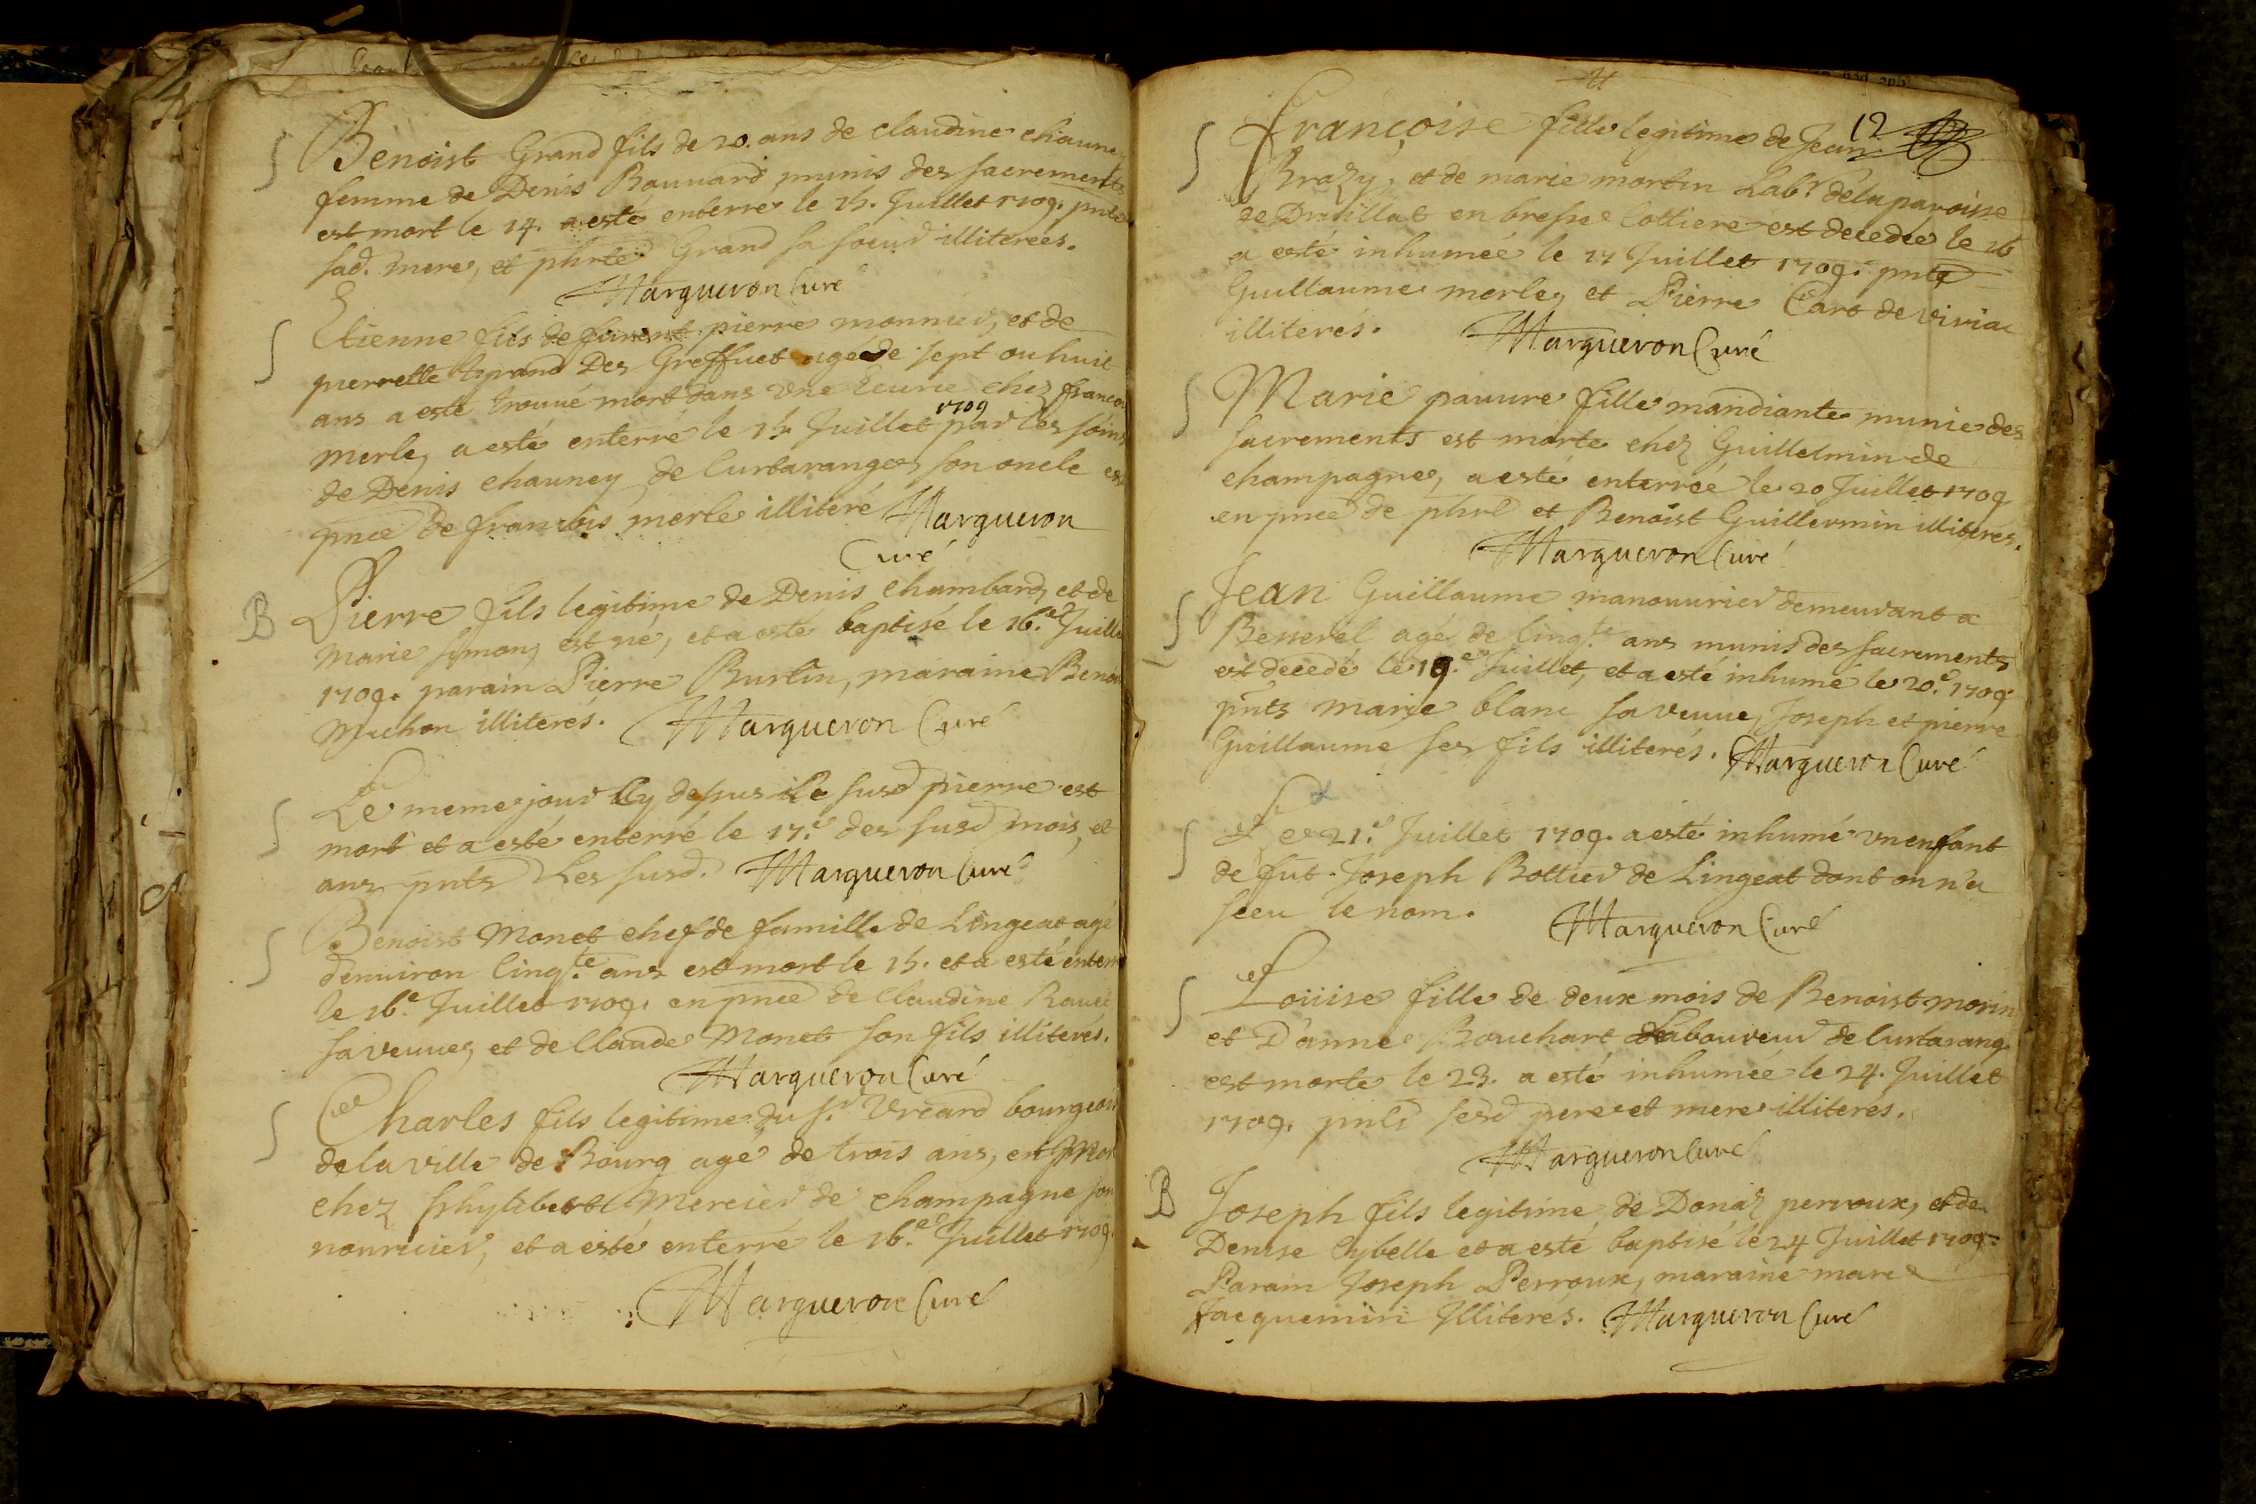 S Benoist Grand fils de 20. ans de claudine chauney
femme de Denis Bouvard munis des sacrements
est mort le 14. a esté enterre le 15. Juillet 1709. pnte
sad. mere, et phrte Grand sa soeur illiterées.
Margueron Curé
S Etienne fils de pierre monnier, et de
pierrette Grand Des Greffuet agé de sept ou huit
ans a esté trouué mort dans vne Ecurie chez francois
merle, a esté enterré le 15. Juillet 1709 par les soins
de Denis chauney de Curtaranges son oncle en
pnce de francois merle illiteré Margueron
Curé
B Pierre fils legitime de Denis Chambard, et de
Marie Simon, est né, et a esté baptisé le 16.e Juillet
1709. parain Pierre Burlin, maraine Benoi
Michon illiterés. Margueron Curé
S Le meme jour Cy dessus le susd pierre est
mort et a esté enterré le 17.e des susd mois, et
ans pnts Les susd. Margueron Curé
S Benoist Monet chef de famille de Lingeat agé
denuiron Cinq.te ans est mort le 15. et a esté enterré
le 16.e Juillet 1709. en pnce de Claudine
sa veuue, et de Claude Monet son fils illiterés.
Margueron Curé
S Charles fils legitime du S.r Vréard bourgeois
de la ville de Bourg agé de trois ans, est mort
chez phylibert Mercier de champagne son
nourricier, et a esté enterré le 16.e Juillet 1709.
Margueron Curé
12
S Françoise fille legitime de Jean
Brazy, et de marie mortin Lab.r de la paroisse
de Druillat en bresse Colliere est decedee le 16
a esté inhumée le 17 Juillet 1709. pnts
Guillaume merle, et Pierre Caro de viriac
illiterés. Margueron Curé
S Marie pauure fille mandiante munie des
sacrements est morte chez Guillelmin de
champagne, a esté enterrée le 20 Juillet 1709
en pnce de phrt et Benoist Guillermin illiterés.
Margueron Curé
S Jean Guillaume manouurier demeurant a
Besserel agé de Cinq.te ans munis des sacrements
est decedé le 19.e Juillet, et a esté inhumé le 20.e 1709.
pnts marie blanc sa veuue, Joseph et pierre
Guillaume ses fils illiterés. Margueron Curé
S Le 21.e Juillet 1709. a esté inhumé vn enfant
de fut Joseph Bottier de Lingeat dont on n'a
sceu le nom. Margueron Curé
S Loüise fille de deux mois de Benoist morin
et D'anne Bouchart Laboureur de Curtarang
est morte le 23. a esté inhumée le 24. Juillet
1709. pnts sesd pere et mere illiterés.
Margueron Curé
B Joseph fils legitime de Donat perroux, et de
Denise Cybelle et a esté baptisé le 24 Juillet 1709.
Parain Joseph Perroux, maraine marie
Jacquemin Illiterés. Margueron Curé